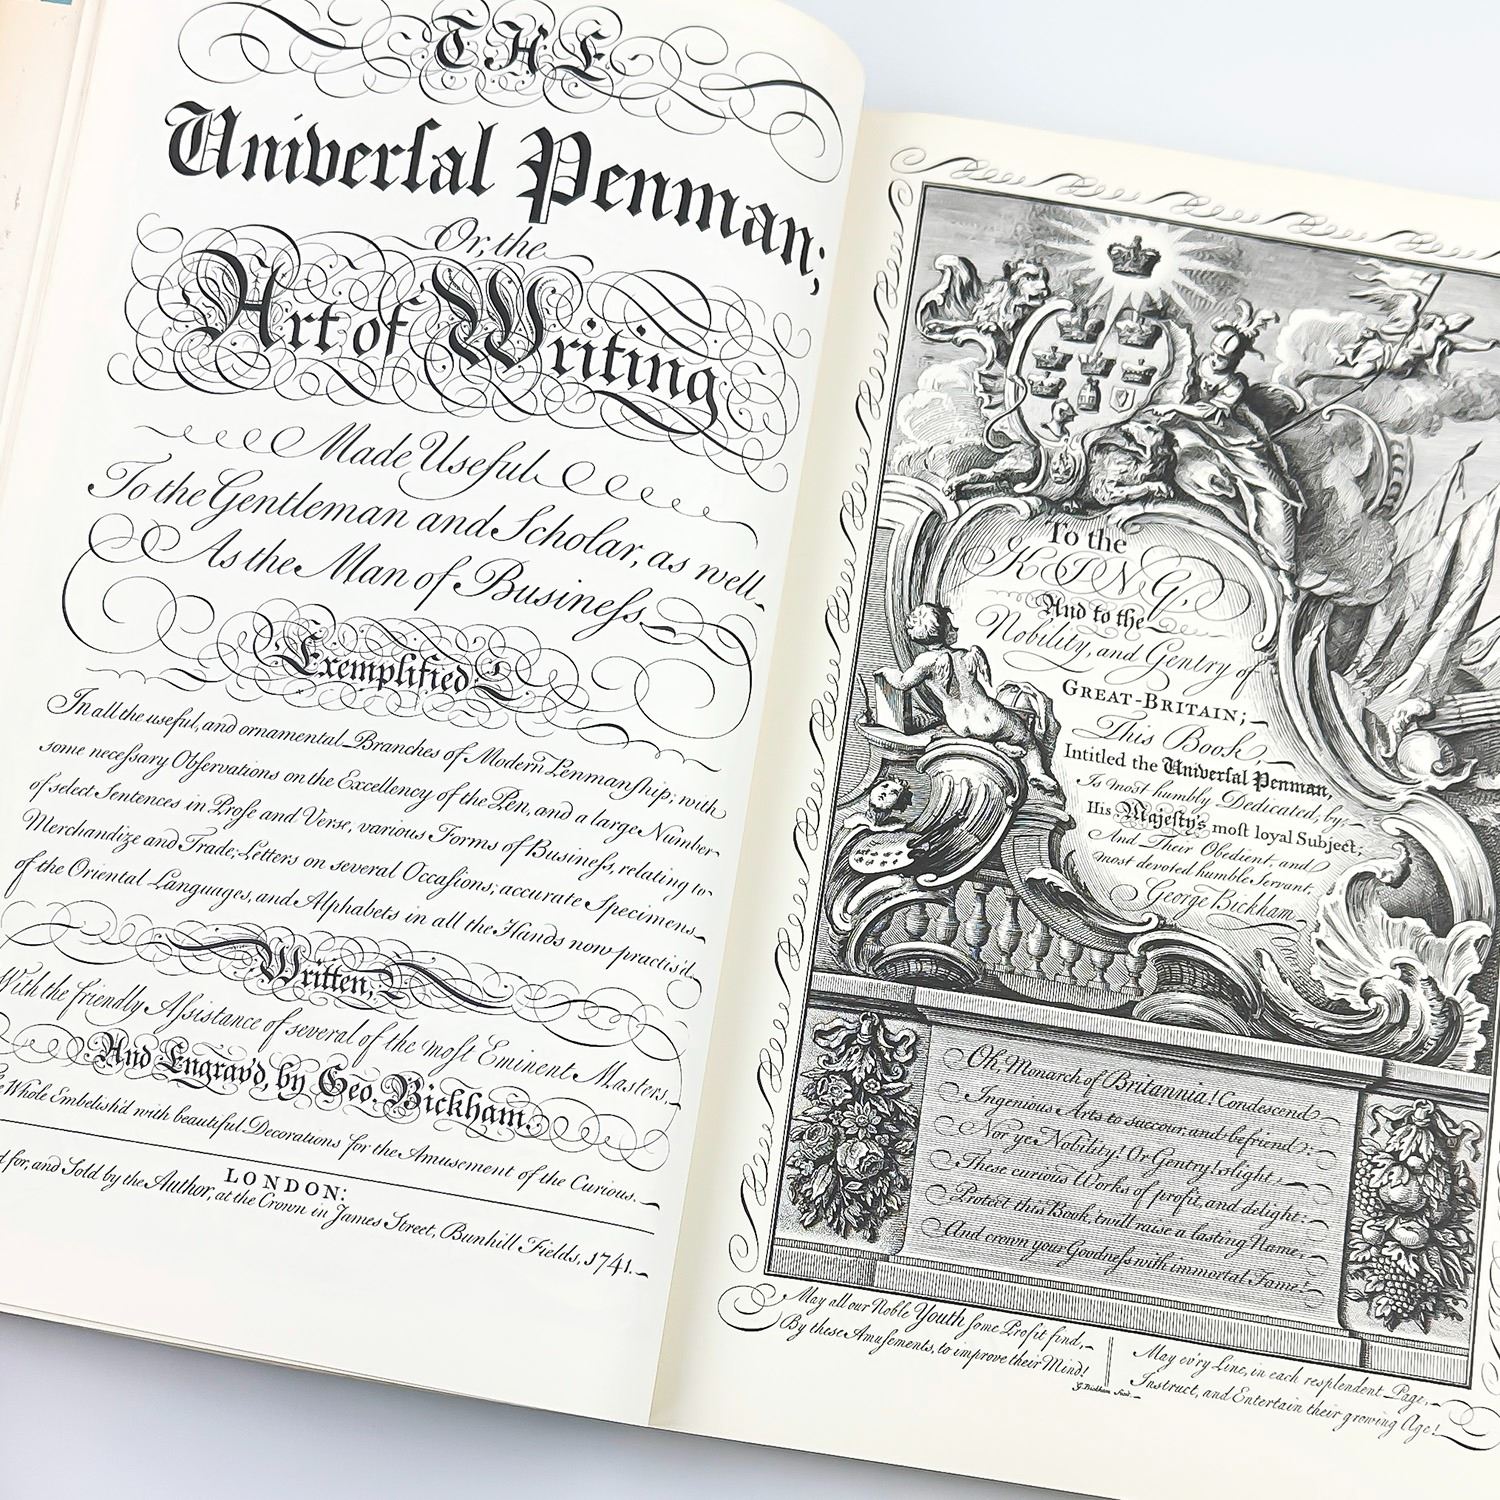 THE
Univerſal Penman;
Or, the
Art of Writing
Made Useful
To the Gentleman and Scholar, as well
As the Man of Busineſs
Exemplified
In all the useful, and ornamental Branches of Modern Penmanſhip; with
some neceſsary Obſervations on the Excellency of the Pen, and a large Number
of select Sentences in Proſe and Verse, various Forms of Busineſs, relating to
Merchandize and Trade; Letters on several Occaſions; accurate Specimens
of the Oriental Languages, and Alphabets in all the Hands now practis'd
Written,
With the friendly Aſsistance of several of the most Eminent Masters,
And Engrav'd, by Geo. Bickham.
Whole Embelish'd with beautiful Decorations for the Amusement of the Curious.
LONDON:
for, and Sold by the Author, at the Crown in James Street, Bunhill Fields, 1741.
To the
KING,
And to the
Nobility, and Gentry of
GREAT-BRITAIN;
This Book,
Intitled the Univerſal Penman,
Is most humbly Dedicated, by,
His Majeſty's moſt loyal Subject;
And Their Obedient, and
most devoted humble Servant,
George Bickham
Oh, Monarch of Britannia! Condescend
Ingenious Arts to succour, and befriend:
Nor ye Nobility! Or Gentry! slight,
These curious Works of profit, and delight:
Protect this Book, 'twill raise a lasting Name,
And crown your Goodneſs with immortal Fame!
May all our Noble Youth ſome Profit find,
By these Amuſements, to improve their Mind!
G. Bickham
May ev'ry Line, in each resplendent Page,
Instruct, and Entertain their growing Age!